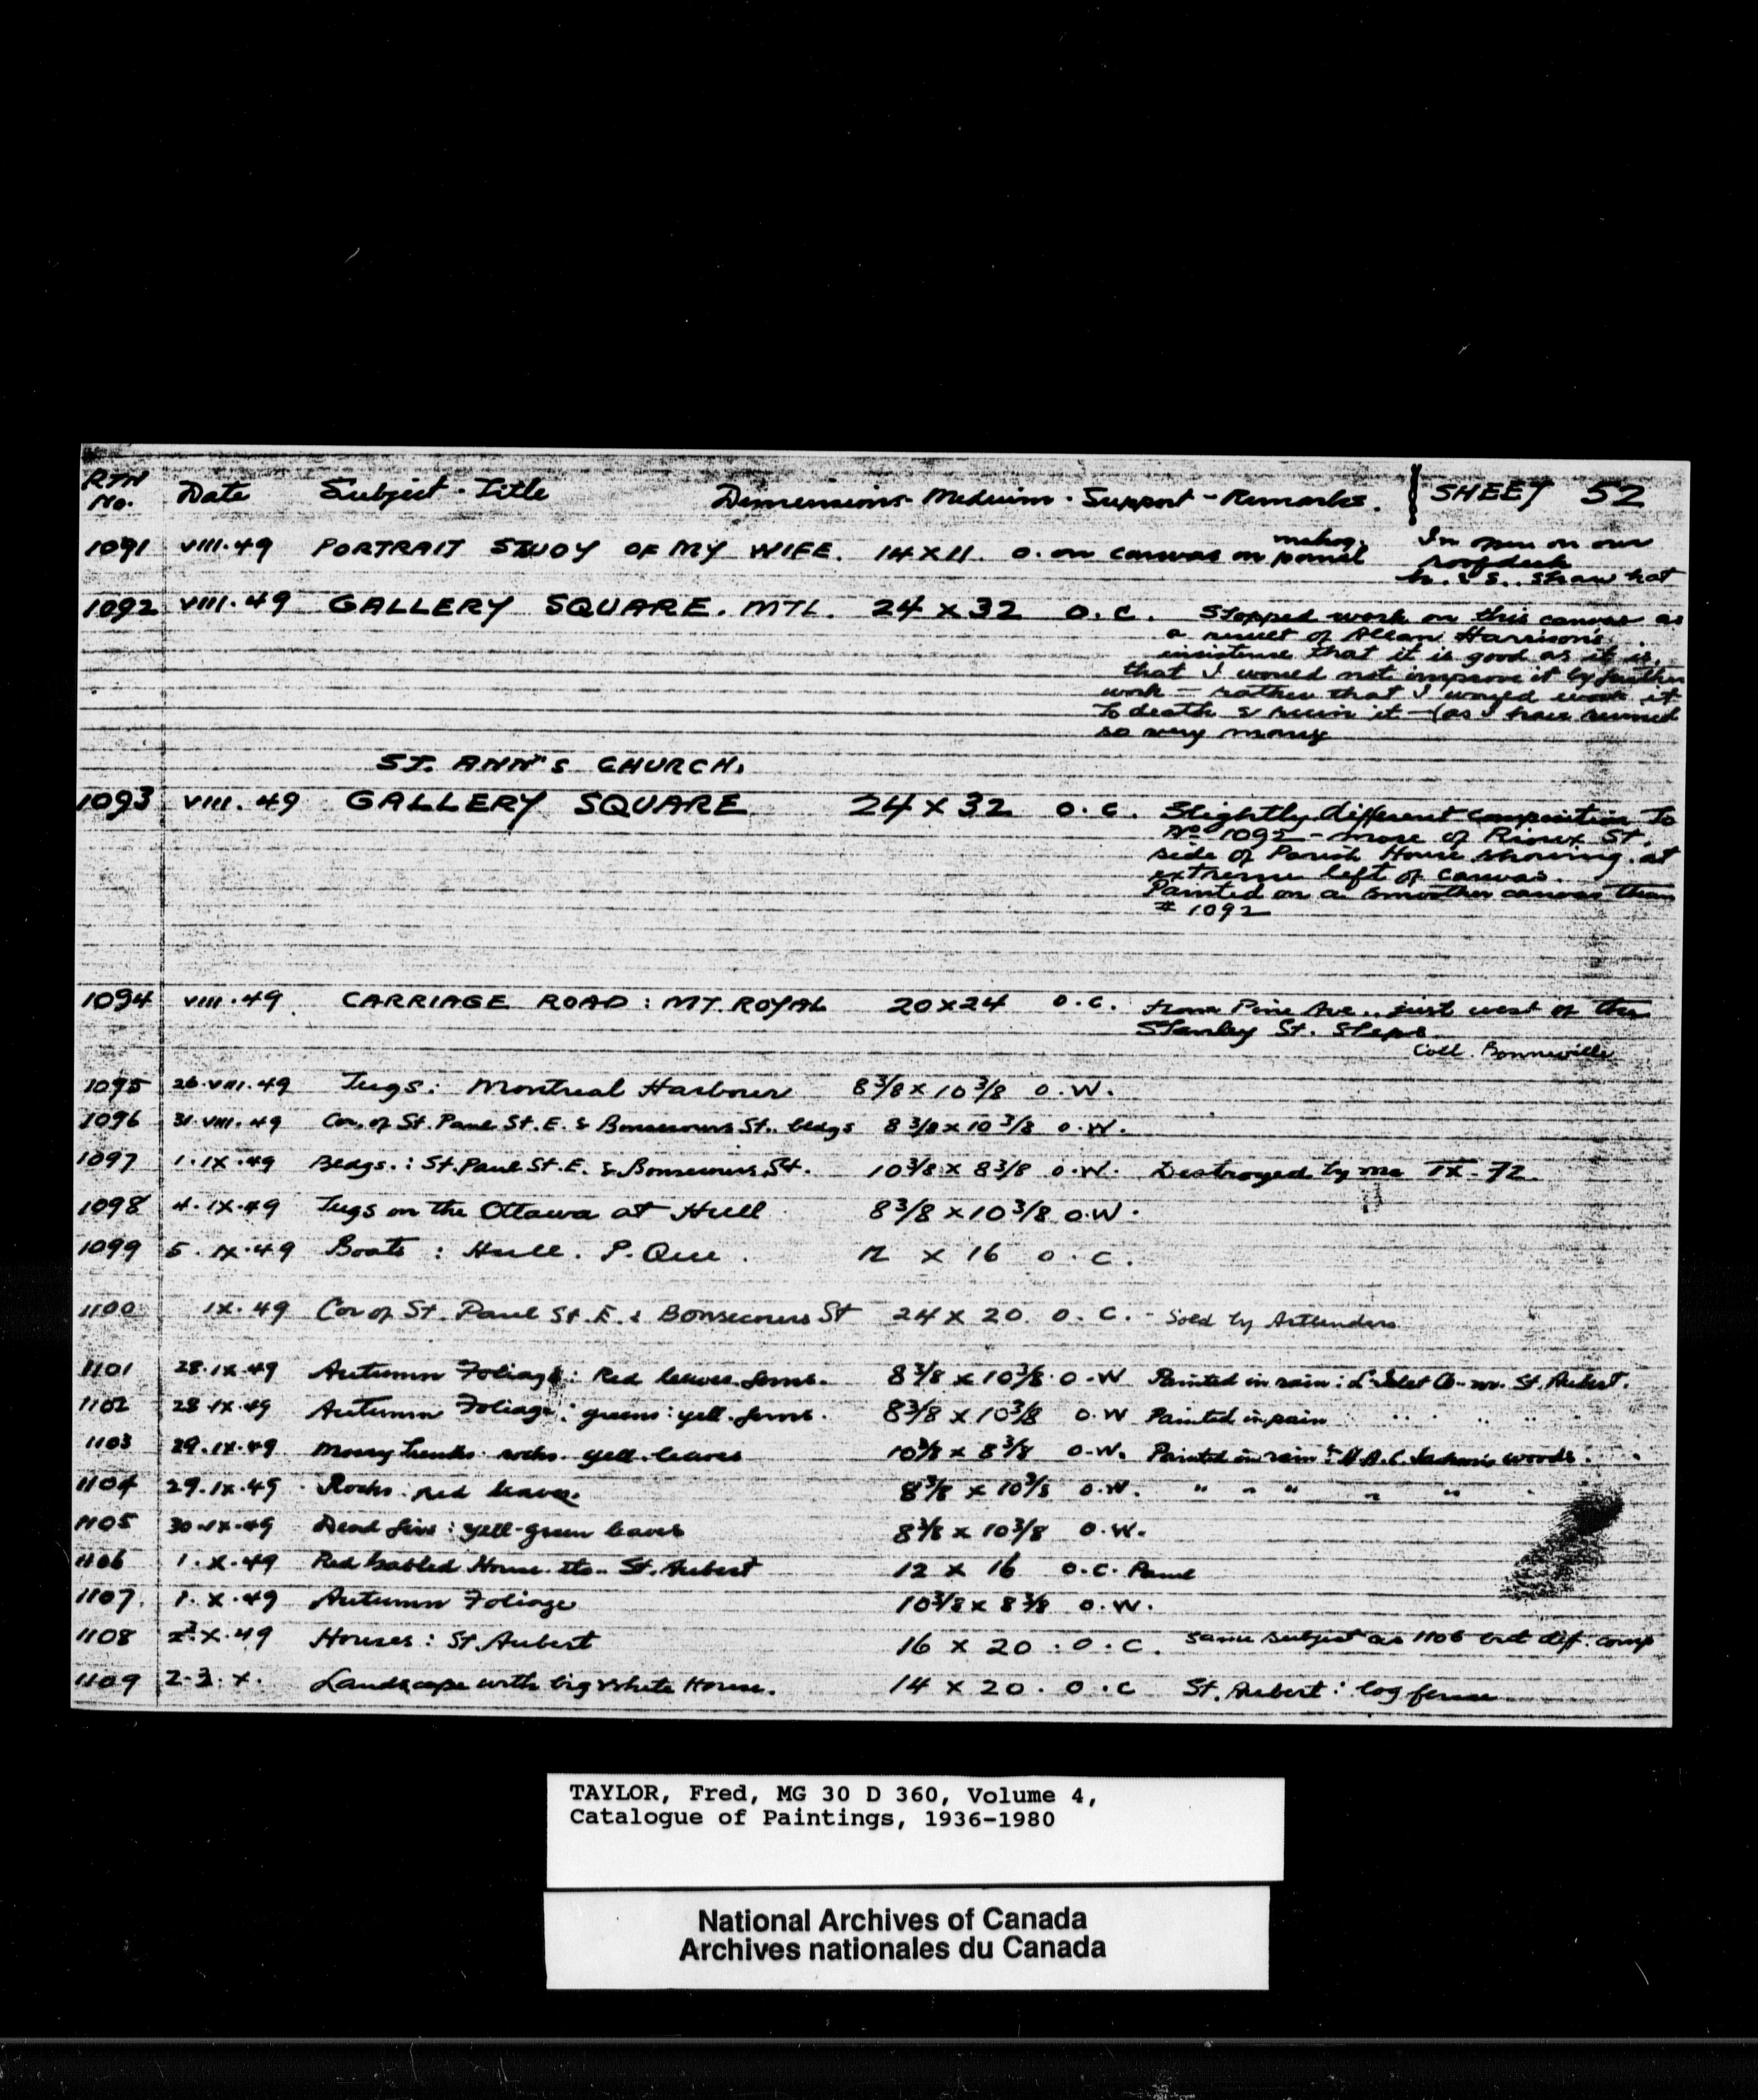 RTN No. Date Subject - Title Dimensions - Medium - Support - Remarks. SHEET 52
1091 VIII.49 PORTRAIT STUDY OF MY WIFE. 14 x 11. O. on canvas on mahog. panel In open on our
roofdeck
h. & s. straw hat
1092 VIII.49 GALLERY SQUARE. MTL. 24 x 32 O.C. Stopped work on this canvas as
a result of Allan Harrison's
insistence that it is good as it is,
that I would not improve it by further
work - rather that I would work it
to death & ruin it - (as I have ruined
so very many
ST. ANN"S CHURCH.
1093 VIII.49 GALLERY SQUARE 24 x 32 O.C. Slightly different composition to
No 1092 - more of St.
side of Parish House showing at
extreme left of canvas.
Painted on a smoother canvas than
# 1092
1094 VIII.49 CARRIAGE ROAD: MT. ROYAL 20x24 O.C. from Pine Ave., just west of the
Stanley St. Steps
Coll. Bonneville
1095 26.VIII.49 Tugs: Montreal Harbour 8 3/8 x 10 3/8 O.W.
1096 31.VIII.49 Cor. of St. Paul St. E. & Bonsecours St. bldgs 8 3/8 x 10 3/8 O.W.
1097 1.IX.49 Bldgs.: St. Paul St. E. & Bonsecours St. 10 3/8 x 8 3/8 O.W. Destroyed by me IX-72.
1098 4.IX.49 Tugs on the Ottawa at Hull 8 3/8 x 10 3/8 O.W.
1099 5.IX.49 Boats: Hull. P. Que. 12 x 16 O.C.
1100 IX.49 Cor of St. Paul St. E. & Bonsecours St 24 x 20. O.C. - Sold by Artlenders
1101 28.IX.49 Autumn Foliage: Red leaves. ferns. 8 3/8 x 10 3/8 O.W Painted in rain: L'Islet Co- nr. St. Aubert.
1102 28.IX.49 Autumn Foliage: greens: yell. ferns. 8 3/8 x 10 3/8 O.W Painted in rain " " " " "
1103 29.IX.49 Mossy trunks. rocks. yell. leaves 10 3/8 x 8 3/8 O.W. Painted in rain: woods.
1104 29.IX.49 Rocks: red leaves. 8 3/8 x 10 3/8 O.W. " " " " "
1105 30.IX.49 Dead firs: yell-green leaves 8 3/8 x 10 3/8 O.W.
1106 1.X.49 Red Gabled House. etc. St. Aubert 12 x 16 O.C. Panel
1107. 1.X.49 Autumn Foliage 10 3/8 x 8 3/8 O.W.
1108 2.X.49 Houses: St. Aubert 16 x 20. O.C. same subject as 1106 but dif. comp
1109 2-3.X. Landscape with big white House. 14 x 20. O.C St. Aubert: log fence
TAYLOR, Fred, MG 30 D 360, Volume 4,
Catalogue of Paintings, 1936-1980
National Archives of Canada
Archives nationales du Canada